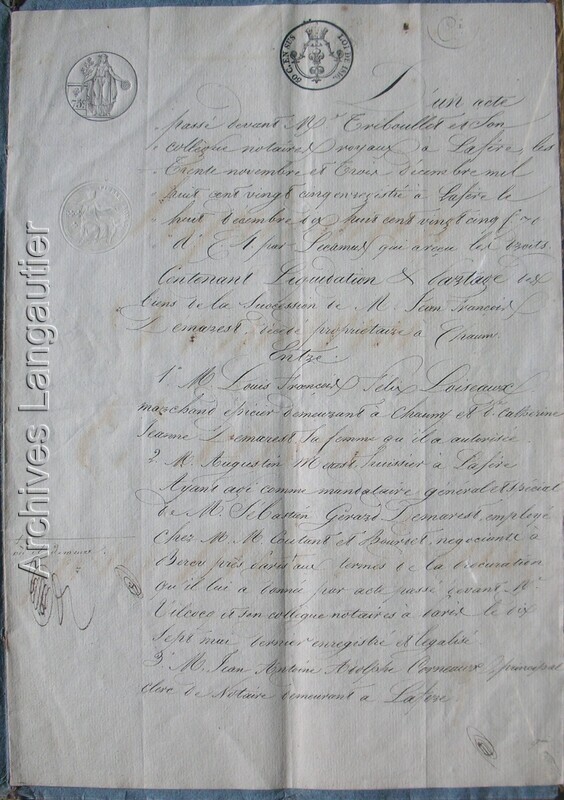 50 C. EN SUS LOI DE 1816
75c
D'un acte
passé devant Me Treboullet et Son
collègue notaires royaux à Lafère, les
trente novembre et trois décembre mil
huit cent vingt cinq enregistré à Lafère le
huit décembre dix huit cent vingt cinq fo
par qui a reçu les droits.
Contenant Liquidation & partage des
biens de la Succession de M. Jean François
Demarest décédé propriétaire à Chauny
Entre:
1o M. Louis François Félix Loiseaux
marchand épicier demeurant à Chauny et De Catherine
Jeanne Demarest sa femme qu'il a autorisée
2o M. Augustin huissier à Lafère
Ayant agi comme mandataire général et spécial
de M. Sebastien Gérard Demarest, employé
chez M. M. Coutant et négociants à
Bercy près Paris aux termes de la procuration
qu'il lui a donnée par acte passé devant Me
Vilcocq et son collègue notaires à Paris le dix
sept mai dernier enregistré & légalisé.
3o M. Jean Antoine Adolphe Corneaux principal
clerc de Notaire demeurant à Lafère
Archives Langautier